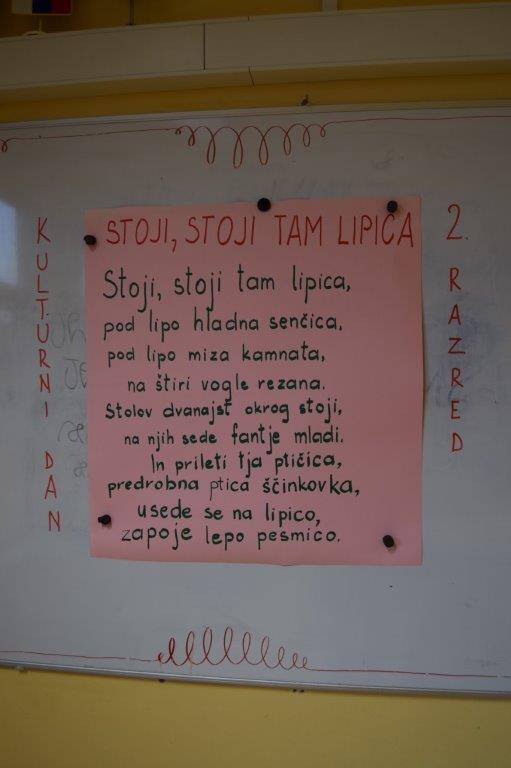 STOJI, STOJI TAM LIPICA
Stoji, stoji tam lipica,
pod lipo hladna senčica,
pod lipo miza kamnata,
na štiri vogle rezana.
Stolov dvanajst okrog stoji,
na njih sede fantje mladi.
In prileti tja ptičica,
predrobna ptica ščinkovka,
usede se na lipico,
zapoje lepo pesmico.
KULTURNI DAN
2. RAZRED